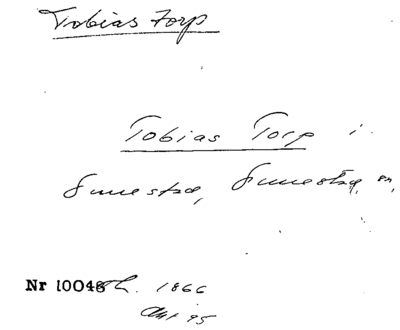 Tobias Torp
Tobias Torp i
Smestad, Smestad, sn,
Nr 10048 h. 1866
Okt 95